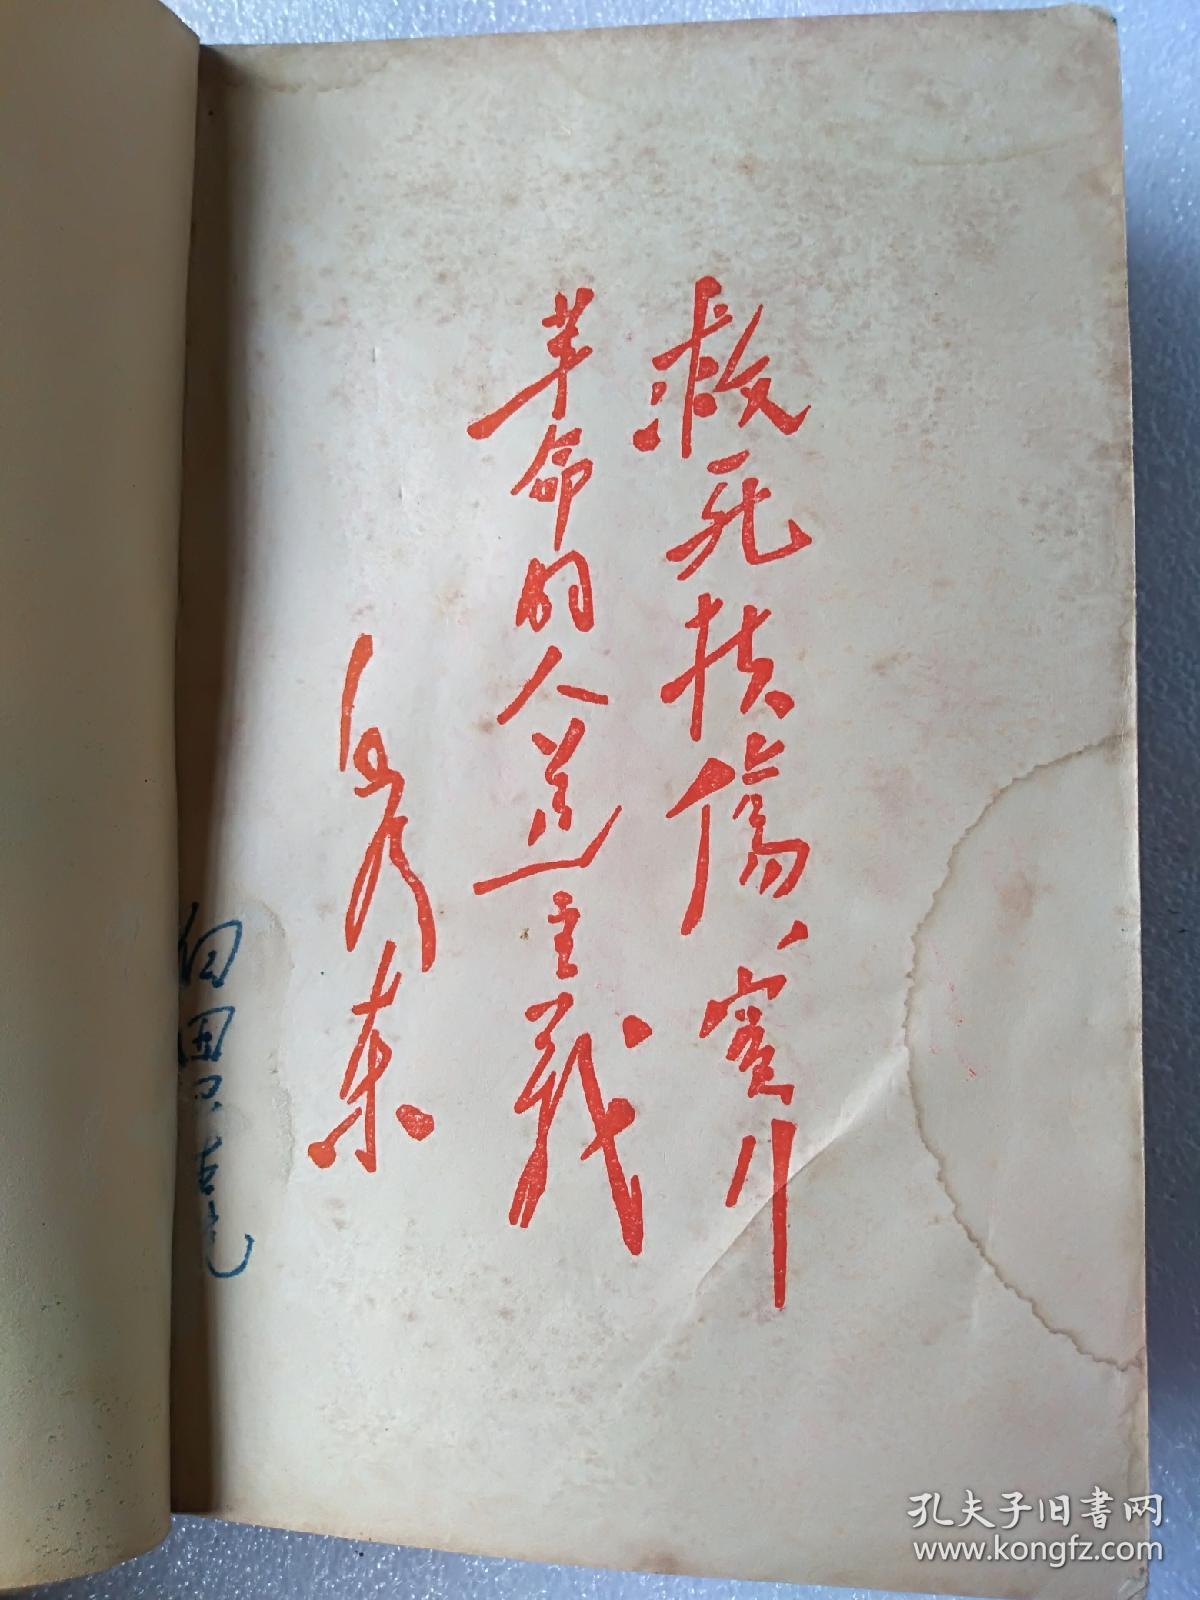 救死扶傷、實行
革命的人道主義
毛澤东
孔夫子旧书网
www.kongfz.com